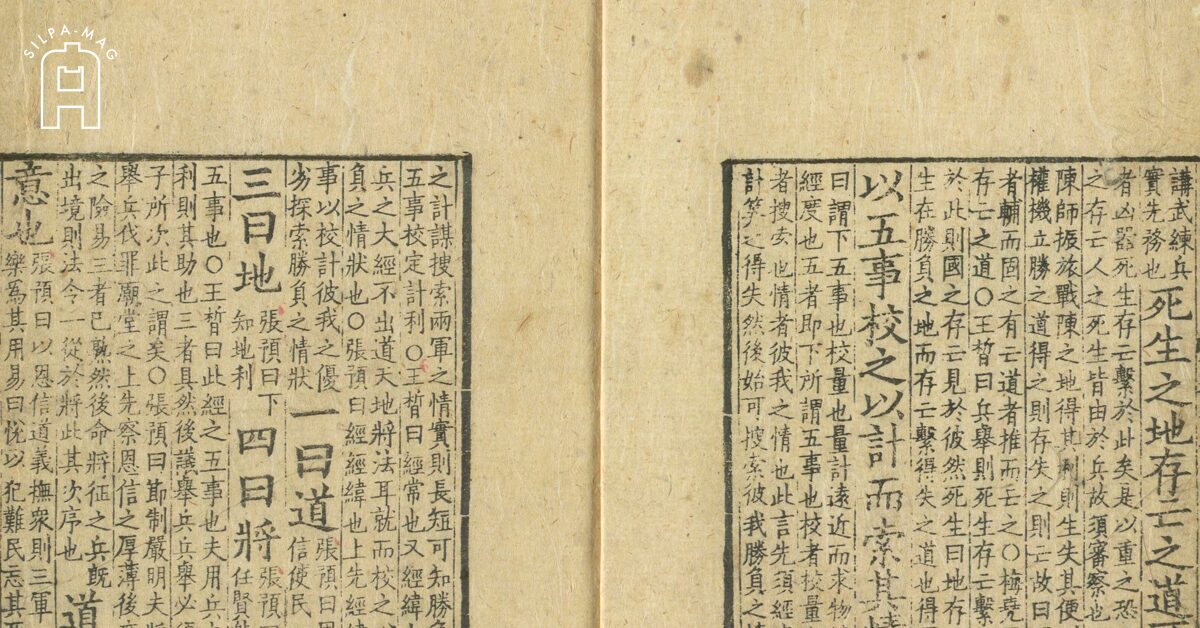 SILPA-MAG
講武練兵
實先務也
死生之地存亡之道
者凶器死生存亡繫於此矣是以重之恐
之存亡人之死生皆由於兵故須審察也
陳師振旅戰陳之地得其利則生失其便
權機立勝之道得之則存失之則亡故曰
者輔而固之有亡道者推而亡之○梅堯
存亡之道○王晳曰兵舉則死生存亡繫
於此則國之存亡見於彼然死生曰地存
生在勝負之地而存亡繫得失之道也得
以五事校之以計而索其情
曰謂下五事也校量也量計遠近而求物
經度也五者即下所謂五事也校者校量
者搜索也情者彼我之情也此言先須經
計筭之得失然後始可搜索彼我勝負之
之計謀搜索兩軍之情實則長短可知勝
五事校定計利○王晳曰經常也又經緯
兵之大經不出道天地將法耳就而校之
負之情狀也○張預曰經經緯也上先經
事以校計彼我之優
劣探索勝負之情狀
一曰道
張預曰
信使民
三曰地
張預曰下
知地利
四曰將
張預
任賢
五事也○王晳曰此經之五事也夫用兵
利則其助也三者具然後議舉兵兵舉必
子所次此之謂矣○張預曰節制嚴明夫
舉兵伐罪廟堂之上先察恩信之厚薄後
之險易三者已熟然後命將征之兵既
出境則法令一從於將此其次序也
道
意也
張預曰以恩信道義撫衆則三軍
樂爲其用易曰悅以犯難民忘其